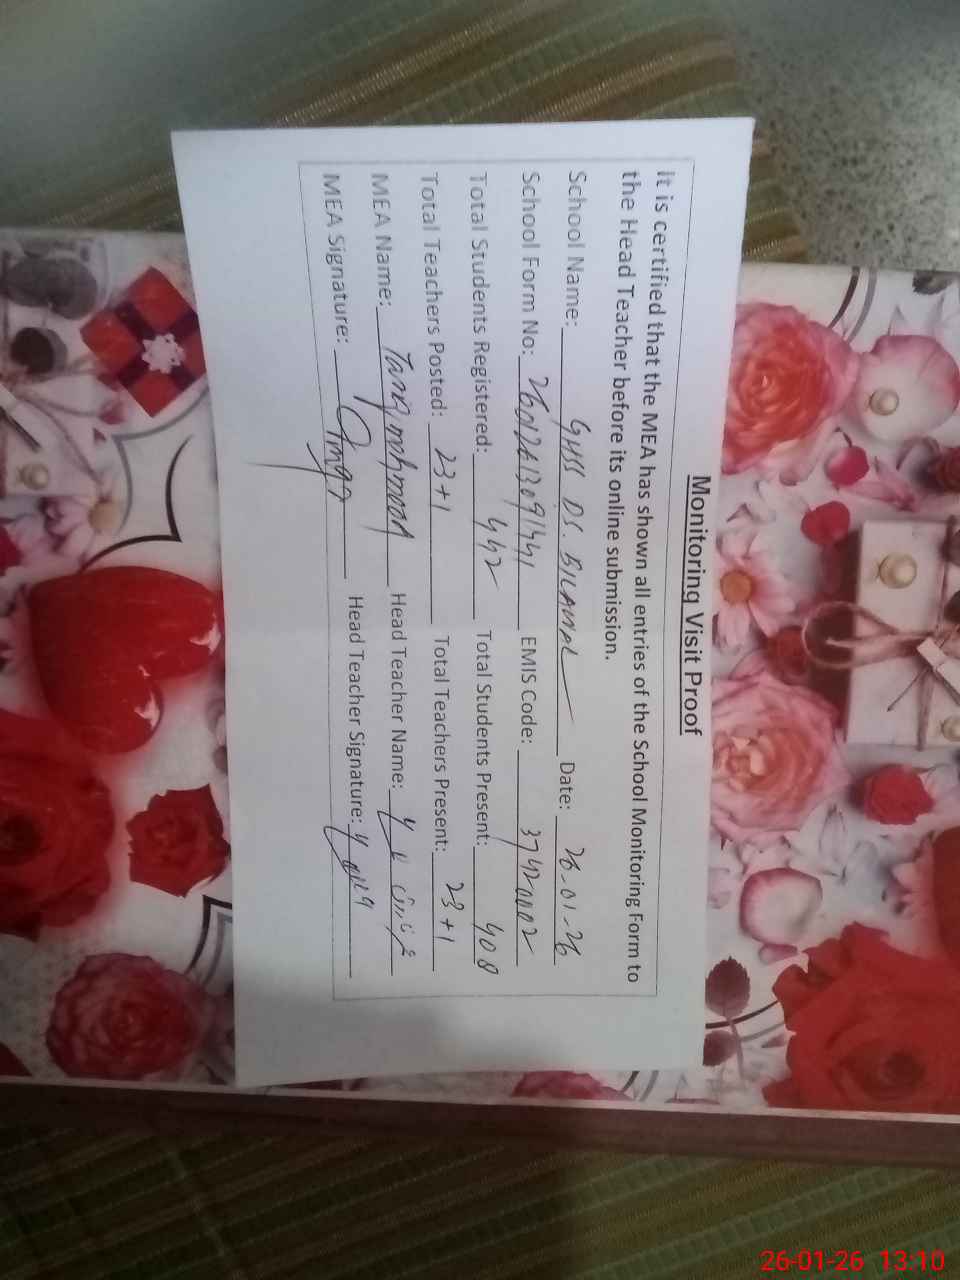 Monitoring Visit Proof
It is certified that the MEA has shown all entries of the School Monitoring Form to
the Head Teacher before its online submission.
School Name: GHSS DS. Date: 26-01-26
School Form No: EMIS Code: 37420002
Total Students Registered: 442 Total Students Present: 408
Total Teachers Posted: 23+1 Total Teachers Present: 23+1
MEA Name: Tariq mehmood Head Teacher Name:
MEA Signature: Head Teacher Signature:
26-01-26 13:10